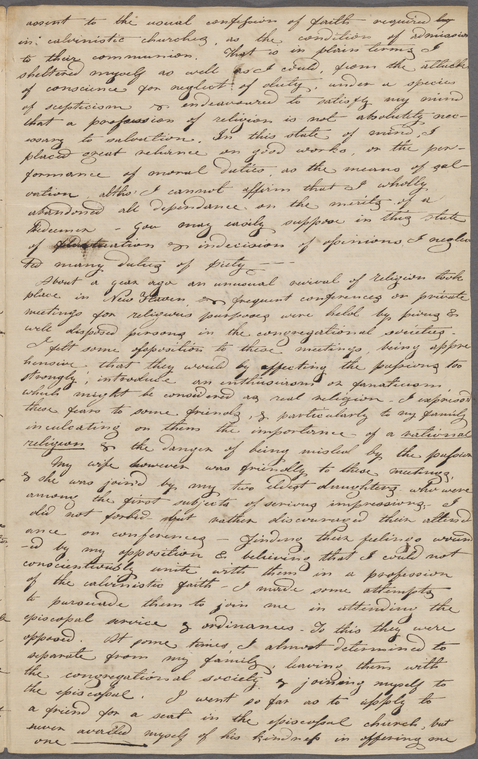 assent to the usual confession of faith required by
in calvinistic churches, as the condition of admission
to their communion. That is in plain terms I
sheltered myself as well as I could, from the attacks
of conscience for neglect of duty, under a species
of scepticism & endeavoured to satisfy my mind
that a profession of religion is not absolutely nec-
essary to salvation. In this state of mind, I
placed great reliance on good works, or the per-
formance of moral duties, as the means of sal-
vation, altho I cannot affirm that I wholly
abandoned all dependance, on the merits of a
Redeemer - You may easily suppose in this state
of & indecision of opinions I neglec
ted many duties of piety
About a year ago an unusual revival of religion took
place in New Haven, & frequent conferences or private
meetings for religious purposes were held by pious &
well disposed persons in the congregational societies.
I felt some opposition to these meetings, being appre
hensive, that they would by affecting the passions too
strongly, introduce an enthusiasm or fanaticism
which might be considered as real religion - I expressed
these fears to some friends, & particularly to my family
inculcating on them the importance of a rational
religion & the danger of being misled by the passions
My wife however was friendly to these meetings,
& she was joined by my two eldest daughters who were
among the first subjects of serious impressions. I
did not forbid but rather discouraged their attend
ance on conferences - finding their feelings wound
ed by my opposition & believing that I could not
conscientiously unite with them in a profession
of the calvinistic faith - I made some attempts
to pursuade them to join me in attending the
episcopal service & ordinances - To this they were
opposed. At some times, I almost determined to
separate from my family, leaving them with
the congregational society, & joining myself to
the episcopal. I went so far as to apply to
a friend for a seat in the episcopal church, but
never availed myself of his kindness in offering me
one